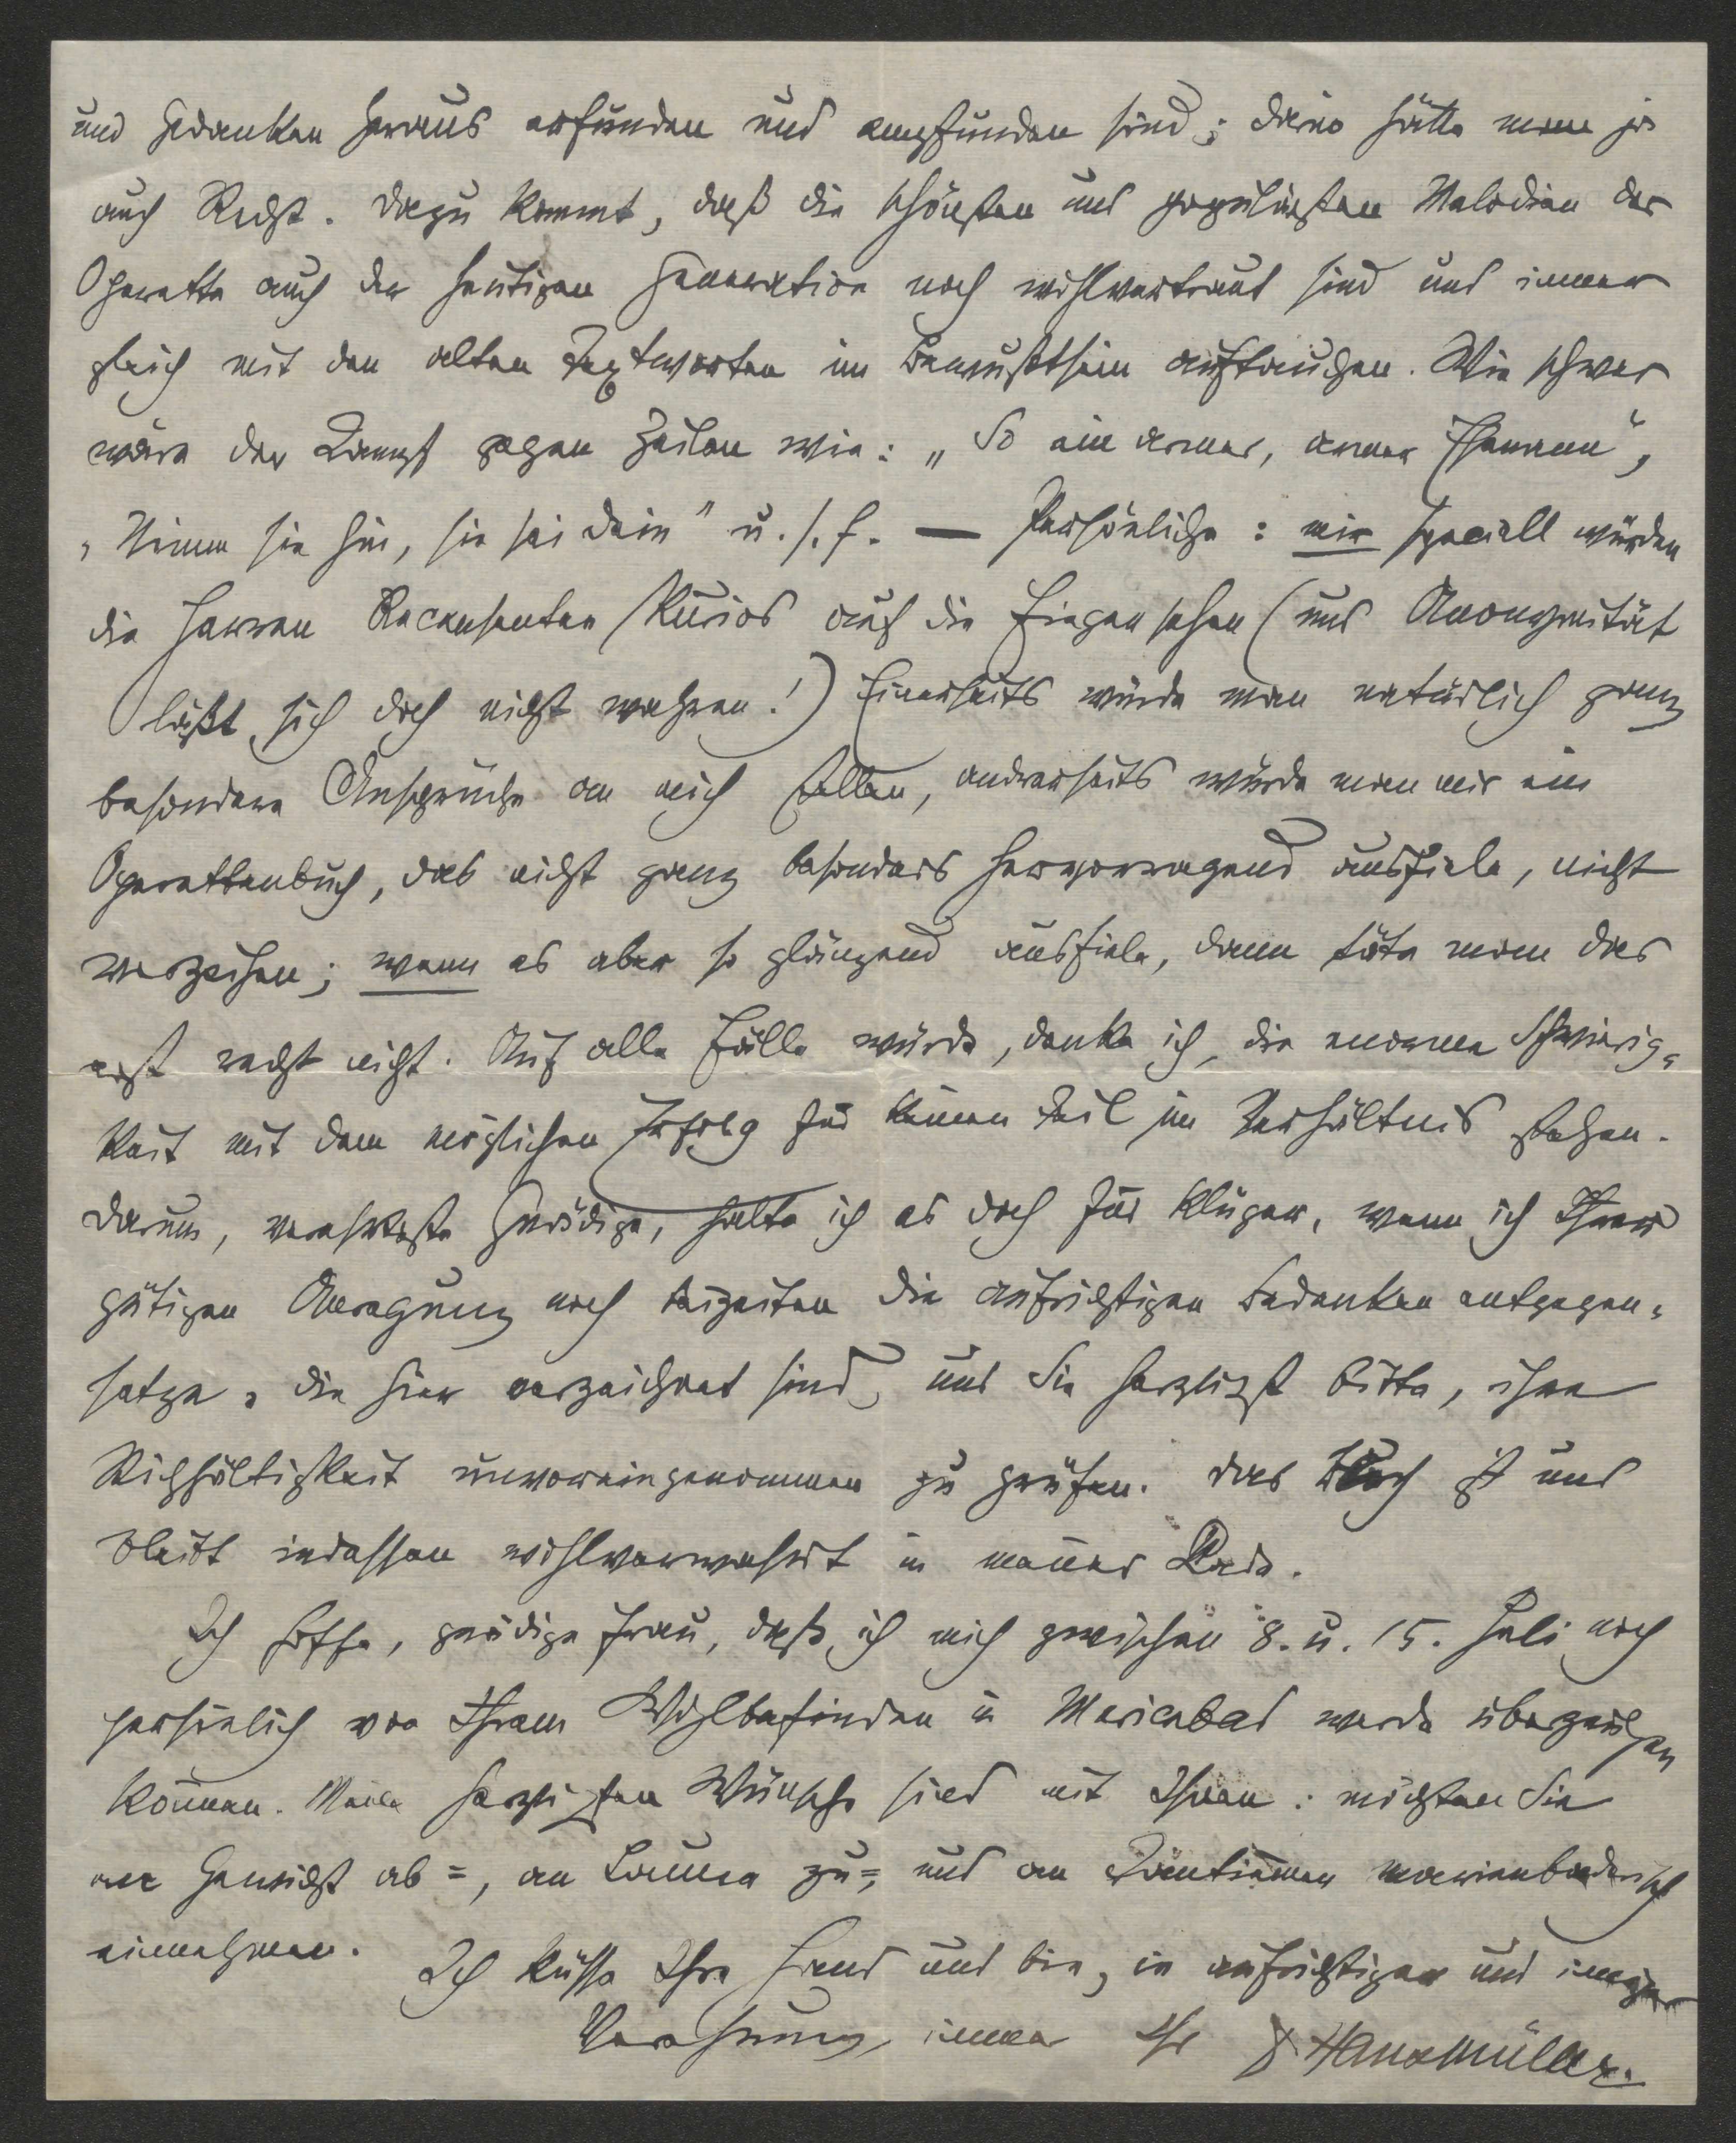 und Gedanken heraus erfunden und empfunden sind; darin hätte man ja
auch Recht. Dazu kommt, daß die schönsten und populärsten Melodien der
Operette auch der heutigen Generation noch wohlvertraut sind und immer
gleich mit den alten Textworten im Bewußtsein auftauchen. Wie schwer
wäre der Kampf gegen Zeilen wie: „So ein armer, armer Ehemann",
„Nimm sie hin, sie sei dein" u.s.f. — Persönliches: mir speciell würden
die Herren Recensenten kurios auf die Finger sehen (und Anonymität
läßt sich doch nicht wahren!) Einerseits würde man natürlich ganz
besondere Ansprüche an mich stellen, anderseits würde man mir ein
Operettenbuch, das nicht ganz besonders hervorragend ausfiele, nicht
verzeihen; wenn es aber so glänzend ausfiele, dann täte man das
erst recht nicht. Auf alle Fälle würde, denke ich, die enorme Schwierig-
keit mit dem möglichen Erfolg für keinen Teil im Verhältnis stehen.
Darum, verehrteste Gnädige, halte ich es doch für klüger, wenn ich Ihrer
gütigen Anregung noch beizeiten die aufrichtigen Bedenken entgegen-
setze, die hier verzeichnet sind, und Sie herzlichst bitte, ihre
Stichhältigkeit unvoreingenommen zu prüfen. Das Buch ist und
bleibt indessen wohlverwahrt in meiner Lade.
Ich hoffe, gnädige Frau, daß ich mich zwischen 8. u. 15. Juli noch
persönlich von Ihrem Wohlbefinden in Marienbad werde überzeugen
können. Meine herzlichsten Wünsche sind mit Ihnen: möchten Sie
an Gewicht ab=, an Laune zu=, und an Tantiemen marienbaderisch
einnehmen.
Ich küsse Ihre Hand und bin, in aufrichtiger und inniger
Verehrung, immer Ihr Dr Hans Müller.